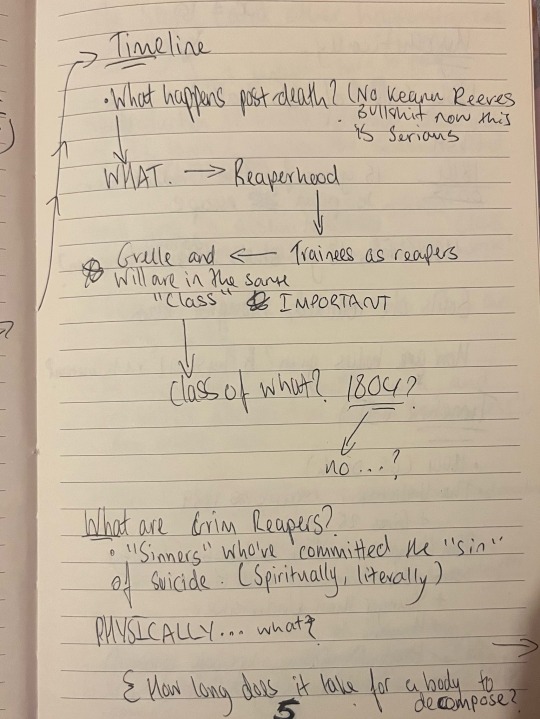 Timeline
• What happens post-death? (No Keanu Reeves
Bullshit now this
is serious
WHAT. → Reaperhood
Grelle and ← Trainees as reapers
Will are in the same
"Class" IMPORTANT
Class of what? 1804?
no...?
What are Grim Reapers?
• "Sinners" who've committed the "sin"
of suicide. (Spiritually, literally)
PHYSICALLY... what?
How long does it take for a body to
decompose?
5